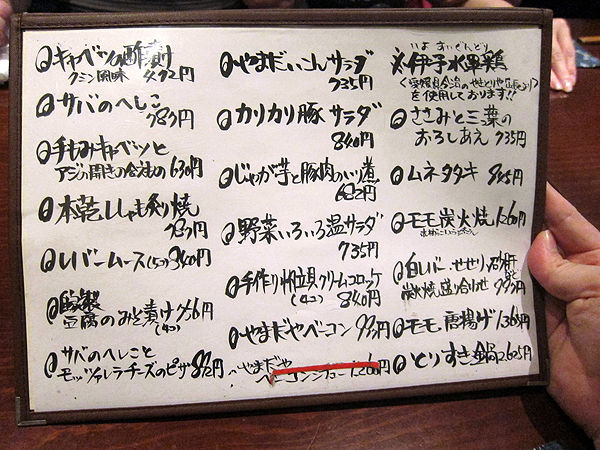 キャベツの酢漬け
クミン風味 472円
サバのへしこ
787円
手もみキャベツと
アジの開きの合わせもの 630円
本乾ししゃも炙り焼
787円
レバームース(5コ) 340円
自家製
豆腐のみそ漬け 456円
(4コ)
サバのへしこと
モッツァレラチーズのピザ 892円
やまだいこんサラダ
735円
カリカリ豚サラダ
840円
じゃが芋と豚肉のいり煮
682円
野菜いろいろ温サラダ
735円
手作り帆立貝クリームコロッケ
(4コ) 840円
やまだやベーコン 997円
やまだや
ベーコンシチュー 1,260円
いよ すいぐんどり
※伊予水軍鶏
<愛媛県今治のやきとり屋 >
を使用しております!!
ささみと三葉の
おろしあえ 735円
ムネタタキ 945円
モモ炭火焼 1260円
白レバー、せせり、砂肝など
炭火焼盛り合わせ 997円
モモ唐揚げ 1,365円
とりすき鍋 2,625円